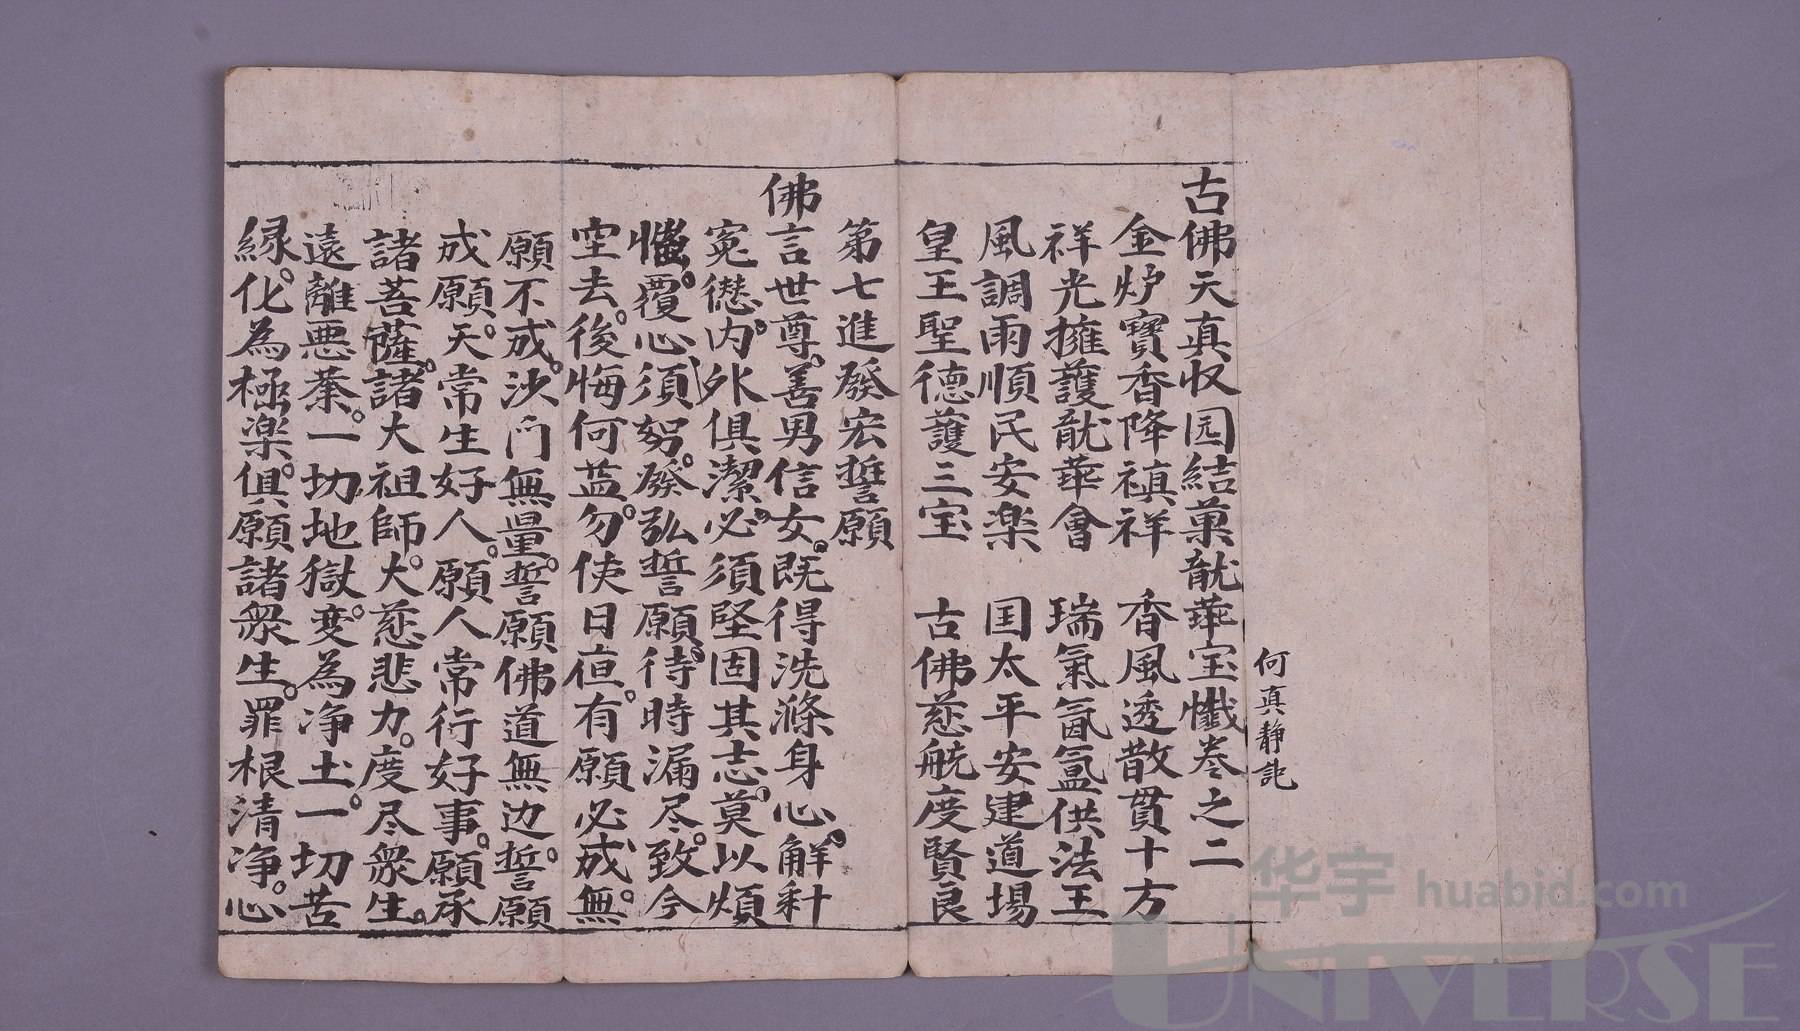 何真静記
古佛天真収园結菓龍華宝懺卷之二
金炉寶香降禎祥 香風透散貫十方
祥光擁護龍華會 瑞氣氤氲供法王
風調雨順民安楽 国太平安建道場
皇王聖德護三宝 古佛慈航度賢良
第七進發宏誓願
佛言世尊。善男信女。既得洗滌身心。解釈
冤愆。内外俱潔。必須堅固其志。莫以煩
惱覆心。須努發弘誓願。待時漏尽。致今
空去。後悔何益。勿使日亱。有願必成。無
願不成。沙门無量。誓願佛道無边。誓願
成願。天常生好人。願人常行好事。願承
諸菩薩。諸大祖師。大慈悲力。度尽衆生。
遠離悪業。一切地獄。变為净土。一切苦
縁。化為極楽。俱願諸衆生。罪根清净。心
华宇 huabid.com
UNIVERSE